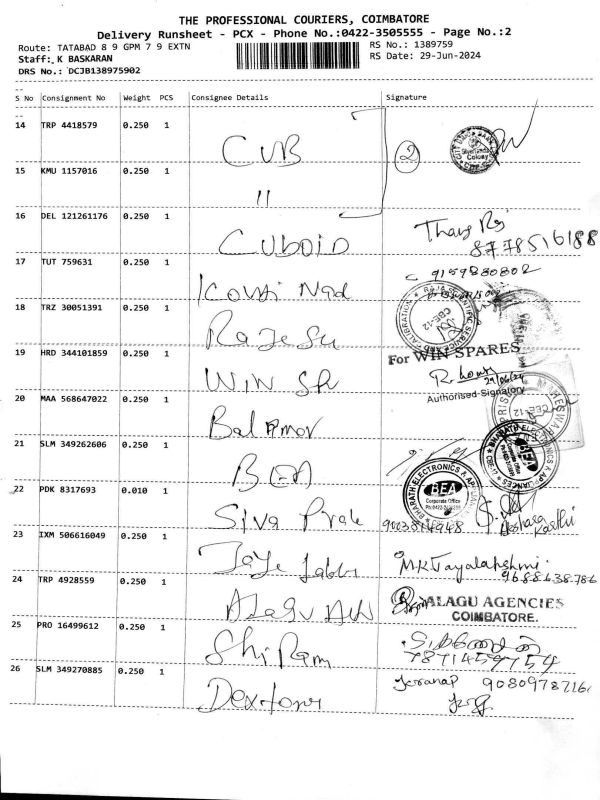 THE PROFESSIONAL COURIERS, COIMBATORE
Delivery Runsheet - PCX - Phone No.:0422-3505555 - Page No.:2
Route: TATABAD 8 9 GPM 7 9 EXTN
RS No.: 1389759
Staff: K BASKARAN
RS Date: 29-Jun-2024
DRS No.: DCJB138975902
S No Consignment No Weight PCS Consignee Details Signature
14 TRP 4418579 0.250 1 CUB 2
15 KMU 1157016 0.250 1 "
16 DEL 121261176 0.250 1 CUBOID Thang Raj
8778516188
17 TUT 759631 0.250 1 9159830802
18 TRZ 30051391 0.250 1 Rajesu
19 HRD 344101859 0.250 1 WIN SP For WIN SPARES
29/06/24
Authorised Signatory
20 MAA 568647022 0.250 1
21 SLM 349262606 0.250 1 BEA
BHARATH ELECTRONICS & APPLIANCES
BEA
Corporate Office
22 PDK 8317693 0.010 1 Siva Prak
23 IXM 506616049 0.250 1 Jaye M.K Jayalakshmi
9688638786
24 TRP 4928559 0.250 1 Alagu ALAGU AGENCIES
COIMBATORE.
25 PRO 16499612 0.250 1 Shi Ram
7871459754
26 SLM 349270885 0.250 1